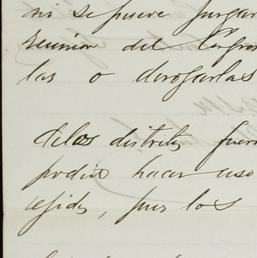 ni se puede juzgar
reunion del Congre
las o derogarlas
de los distritos fuer
podido hacer uso
egidos, pues los